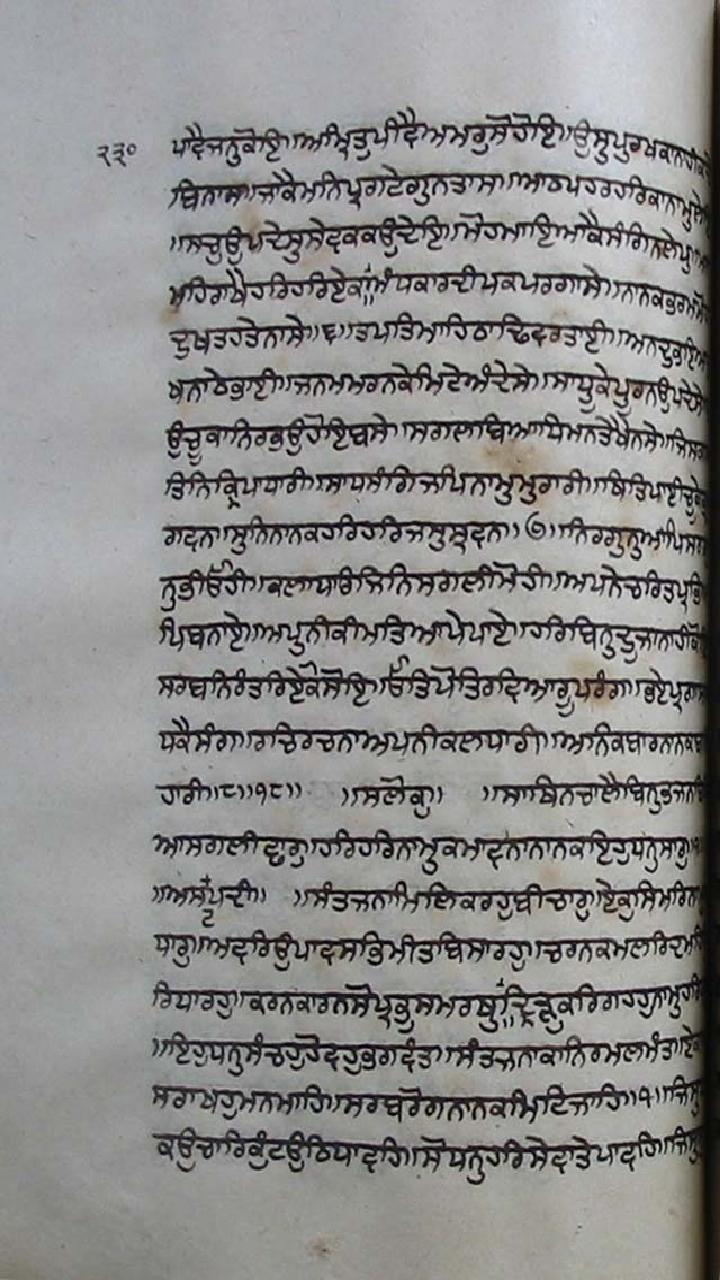 ੨੩੦ ਪਦੈਜਨੁਕੋਇ॥ਅਮ੍ਰਿਤੁਪੀਵੈਅਮਰੁਸੋਹੋਇ॥ਉਸੁਪੁਰਖਕਾਨਾਹੀ
ਬਿਨਾਸ॥ਜਾਕੈਮਨਿਪ੍ਰਗਟੇਗੁਨਤਾਸ॥ਆਠਪਹਰਹਰਿਕਾਨਾਮੁ
॥ਸਚੁਉਪਦੇਸੁਸੇਵਕਕਉਦੇਇ॥ਮੋਹਮਾਇਆਕੈਸੰਗਿਨਲੇਪੁ॥
ਮਹਿਰਾਖੈਹਰਿਹਰਿਏਕ॥ਅੰਧਕਾਰਦੀਪਕਪਰਗਾਸੇ॥ਨਾਨਕਭਰਮ
ਦੁਖਤਹਤੇਨਾਸੇ॥੬॥ਤਪਤਿਮਾਹਿਠਾਢਿਵਰਤਾਈ॥ਅਨਦੁਭਇਆ
ਖਨਾਠੇਭਾਈ॥ਜਨਮਮਰਨਕੇਮਿਟੇਅੰਦੇਸੇ॥ਸਾਧੂਕੇਪੂਰਨਉਪਦੇਸੇ
ਉਚੂਕਾਨਿਰਭਉਹੋਇਬਸੇ॥ਸਗਲਬਿਆਧਿਮਨਤੇਖੈਨਸੇ॥ਜਿਸ
ਤਿਨਿਕ੍ਰਿਪਾਧਾਰੀ॥ਸਾਧਸੰਗਿਜਪਿਨਾਮੁਮੁਰਾਰੀ॥ਥਿਤਿਪਾਈਚੂਕੇ
ਗਵਨ॥ਸੁਨਿਨਾਨਕਹਰਿਹਰਿਜਸੁਸ੍ਰਵਨ॥੭॥ਨਿਰਗੁਨੁਆਪਿਸਰ
ਨੁਭੀਓਹੀ॥ਕਲਾਧਾਰਿਜਿਨਿਸਗਲੀਮੋਹੀ॥ਅਪਨੇਚਰਿਤਪ੍ਰਭਿ
ਪਿਬਨਾਏ॥ਅਪੁਨੀਕੀਮਤਿਆਪੇਪਾਏ॥ਹਰਿਬਿਨੁਦੂਜਾਨਾਹੀਕੋ
ਸਰਬਨਿਰੰਤਰਿਏਕੋਸੋਇ॥ਓਤਿਪੋਤਿਰਵਿਆਰੂਪਰੰਗ॥ਭਏਪ੍ਰਗਾਸ
ਧਕੈਸੰਗ॥ਰਚਿਰਚਨਾਅਪਨੀਕਲਧਾਰੀ॥ਅਨਿਕਬਾਰਨਾਨਕਬ
ਹਾਰੀ॥੮॥੧੮॥ ॥ਸਲੋਕੁ॥ ॥ਸਾਥਿਨਚਾਲੈਬਿਨੁਭਜਨ
ਆਸਗਲੀਛਾਰੁ॥ਹਰਿਹਰਿਨਾਮੁਕਮਾਵਨਾਨਾਨਕਇਹੁਧਨੁਸਾਰੁ
॥ਅਸਟਪਦੀ॥ ॥ਸੰਤਜਨਾਮਿਲਿਕਰਹੁਬੀਚਾਰੁ॥ਏਕੁਸਿਮਰਿਨਾਮ
ਧਾਰੁ॥ਅਵਰਿਉਪਾਵਸਭਿਮੀਤਬਿਸਾਰਹੁ॥ਚਰਨਕਮਲਰਿਦਮਹਿ
ਰਿਧਾਰਹੁ॥ਕਰਨਕਾਰਨਸੋਪ੍ਰਭੁਸਮਰਥੁ॥ਦ੍ਰਿੜੁਕਰਿਗਹਹੁਨਾਮੁਹਰਿ
॥ਇਹੁਧਨੁਸੰਚਹੁਹੋਵਹੁਭਗਵੰਤ॥ਸੰਤਜਨਾਕਾਨਿਰਮਲਮੰਤ॥ਏਕ
ਸਰਾਖਹੁਮਨਮਾਹਿ॥ਸਰਬਰੋਗਨਾਨਕਮਿਟਿਜਾਹਿ॥੧॥ਜਿਸੁ
ਕਉਚਾਰਿਕੁੰਟਉਠਿਧਾਵਹਿ॥ਸੋਧਨੁਹਰਿਸੇਵਾਤੇਪਾਵਹਿ॥ਜਿਸੁ